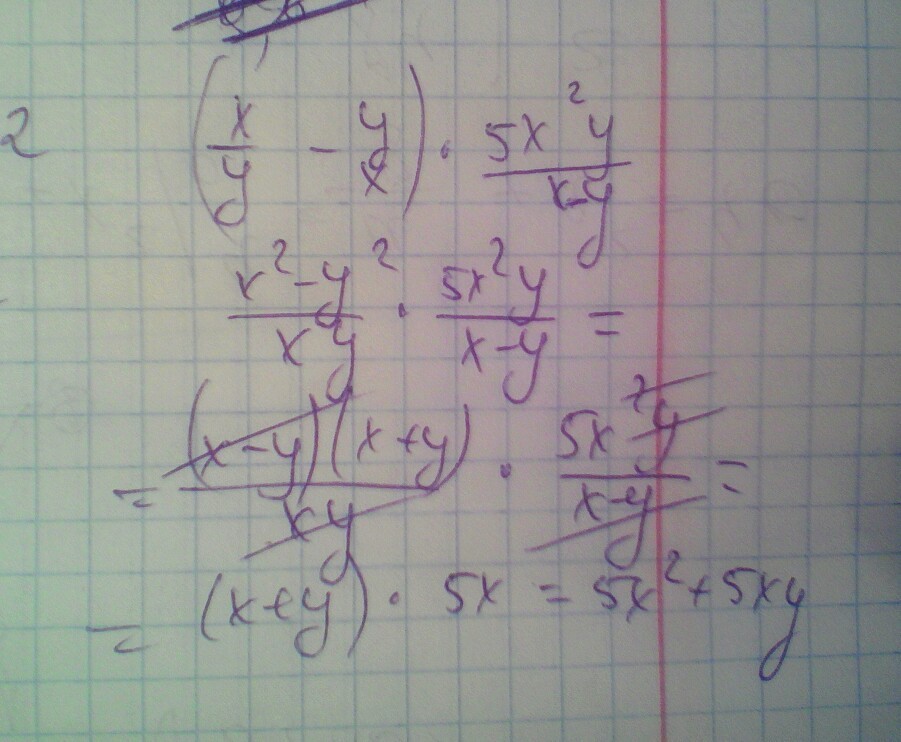 2 (x/y - y/x) · 5x²y/x-y
x²-y²/xy · 5x²y/x-y =
= (x-y)(x+y)/xy · 5x²y/x-y =
= (x+y) · 5x = 5x²+5xy